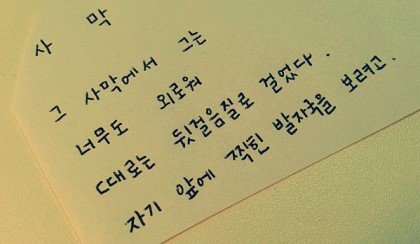 사 막
그 사막에서 그는
너무도 외로워
때로는 뒷걸음질로 걸었다.
자기 앞에 찍힌 발자국을 보려고.